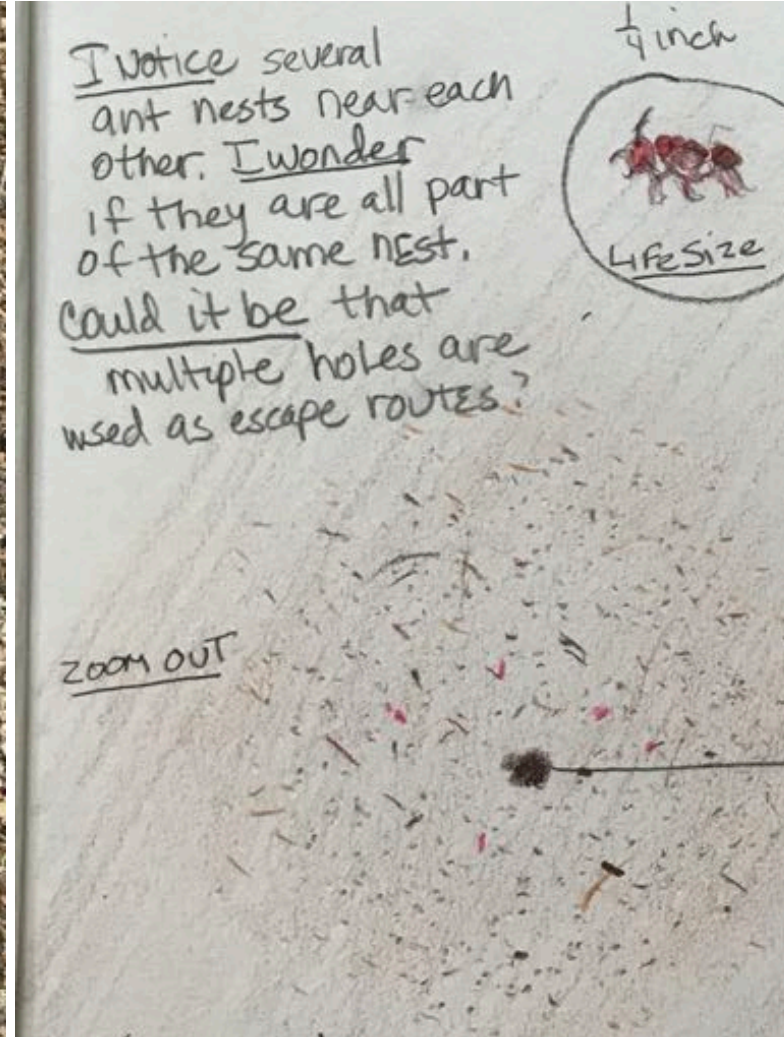 I Notice several
ant nests near each
other. I wonder
if they are all part
of the same nest.
Could it be that
multiple holes are
used as escape routes?
1/4 inch
LIFE SIZE
ZOOM OUT